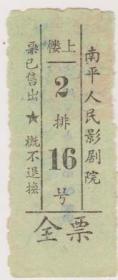 南平人民影剧院
楼上
2
排
16
号
票已售出★概不退换
全票